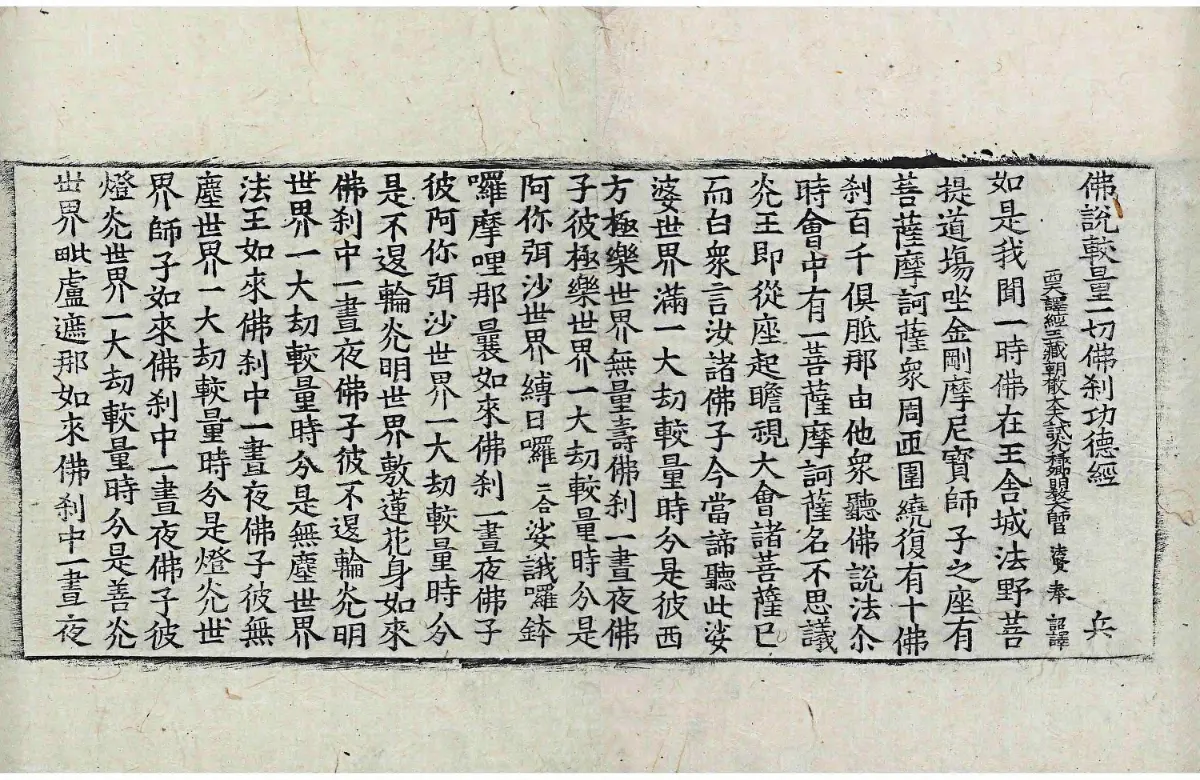 佛說較量一切佛刹功德經　兵
西天譯經三藏朝散大夫試光祿卿明教大師　法賢　奉　詔譯
如是我聞一時佛在王舍城法野菩
提道塲坐金剛摩尼寶師子之座有
菩薩摩訶薩衆周匝圍繞復有十佛
刹百千俱胝那由他衆聽佛說法尒
時會中有一菩薩摩訶薩名不思議
光王即從座起瞻視大會諸菩薩已
而白衆言汝諸佛子今當諦聽此娑
婆世界滿一大劫較量時分是彼西
方極樂世界無量壽佛刹一晝夜佛
子彼極樂世界一大劫較量時分是
阿你弭沙世界縛日囉二合娑誐囉鉢
囉摩哩那曩如來佛刹一晝夜佛子
彼阿你弭沙世界一大劫較量時分
是不退輪光明世界敷蓮花身如來
佛刹中一晝夜佛子彼不退輪光明
世界一大劫較量時分是無塵世界
法王如來佛刹中一晝夜佛子彼無
塵世界一大劫較量時分是燈光世
界師子如來佛刹中一晝夜佛子彼
燈光世界一大劫較量時分是善光
世界毗盧遮那如來佛刹中一晝夜